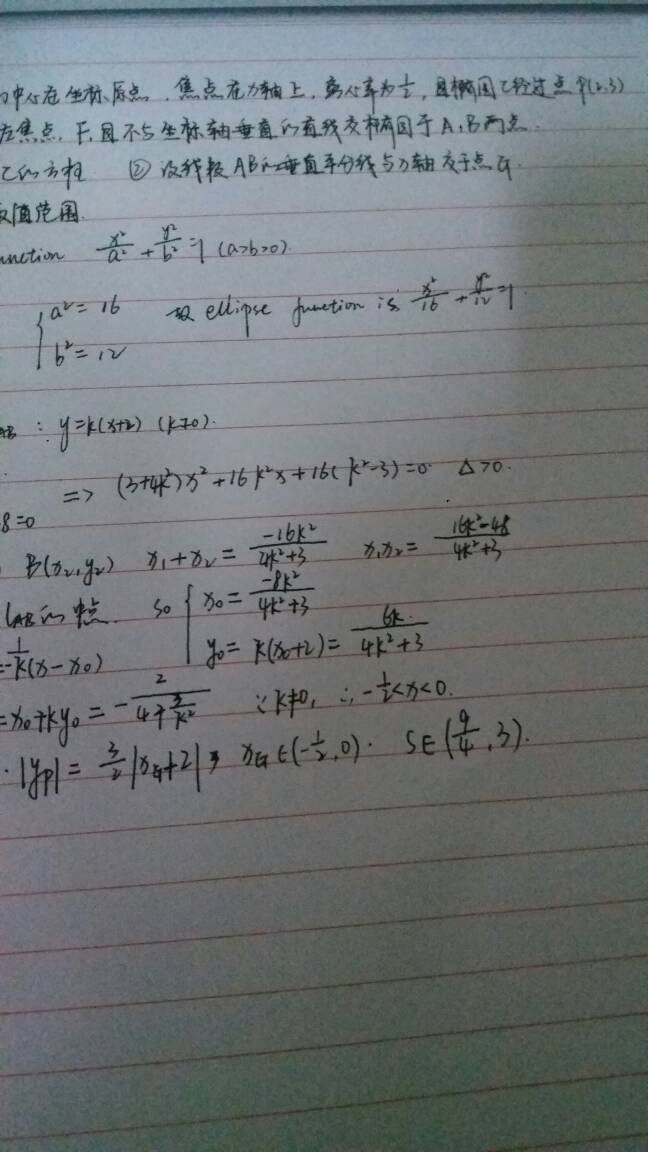 中心在坐标原点,焦点在x轴上,离心率为½,且椭圆C经过点P(2,3)
左焦点F,且不与坐标轴垂直的直线交椭圆于A,B两点.
C的方程 ② 设线段AB的垂直平分线与x轴交于点G
取值范围.
unction x²/a² + y²/b² =1 (a>b>0).
{ a² = 16 故 ellipse function is x²/16 + y²/12 =1.
b² = 12
AB : y=k(x+2) (k≠0).
=> (3+4k²)x²+16k²x+16(k²-3)=0 Δ>0.
8=0
B(x₂,y₂) x₁+x₂ = -16k²/4k²+3 x₁x₂ = 16k²-48/4k²+3
lAB的中点. so { x₀ = -8k²/4k²+3
y₀= k(x₀+2) = 6k/4k²+3
= -1/k(x-x₀)
=x₀+ky₀= - 2/4+3/k² ∵k≠0, ∴ -½<x<0.
·|yp| = 3/2|xG+2|, xG∈(-½,0). S∈(9/4,3).